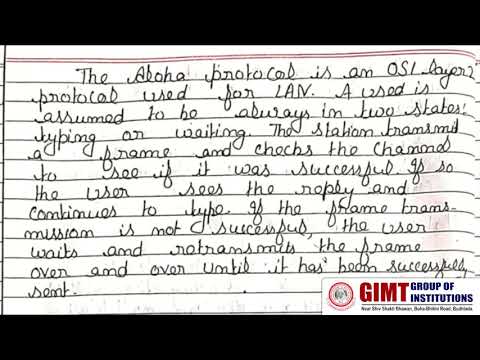 The Aloha protocol is an OSI layer 2
protocol used for LAN. A used is
assumed to be always in two states:
typing or waiting. The station transmit
a frame and checks the channel
to see if it was successful. If so
the user sees the reply and
continues to type. If the frame trans-
mission is not successful, the user
waits and retransmits the frame
over and over until it has been successfully
sent.
GIMT GROUP OF
INSTITUTIONS
Near Shiv Shakti Bhawan, Boha-Bhikhi Road, Budhlada